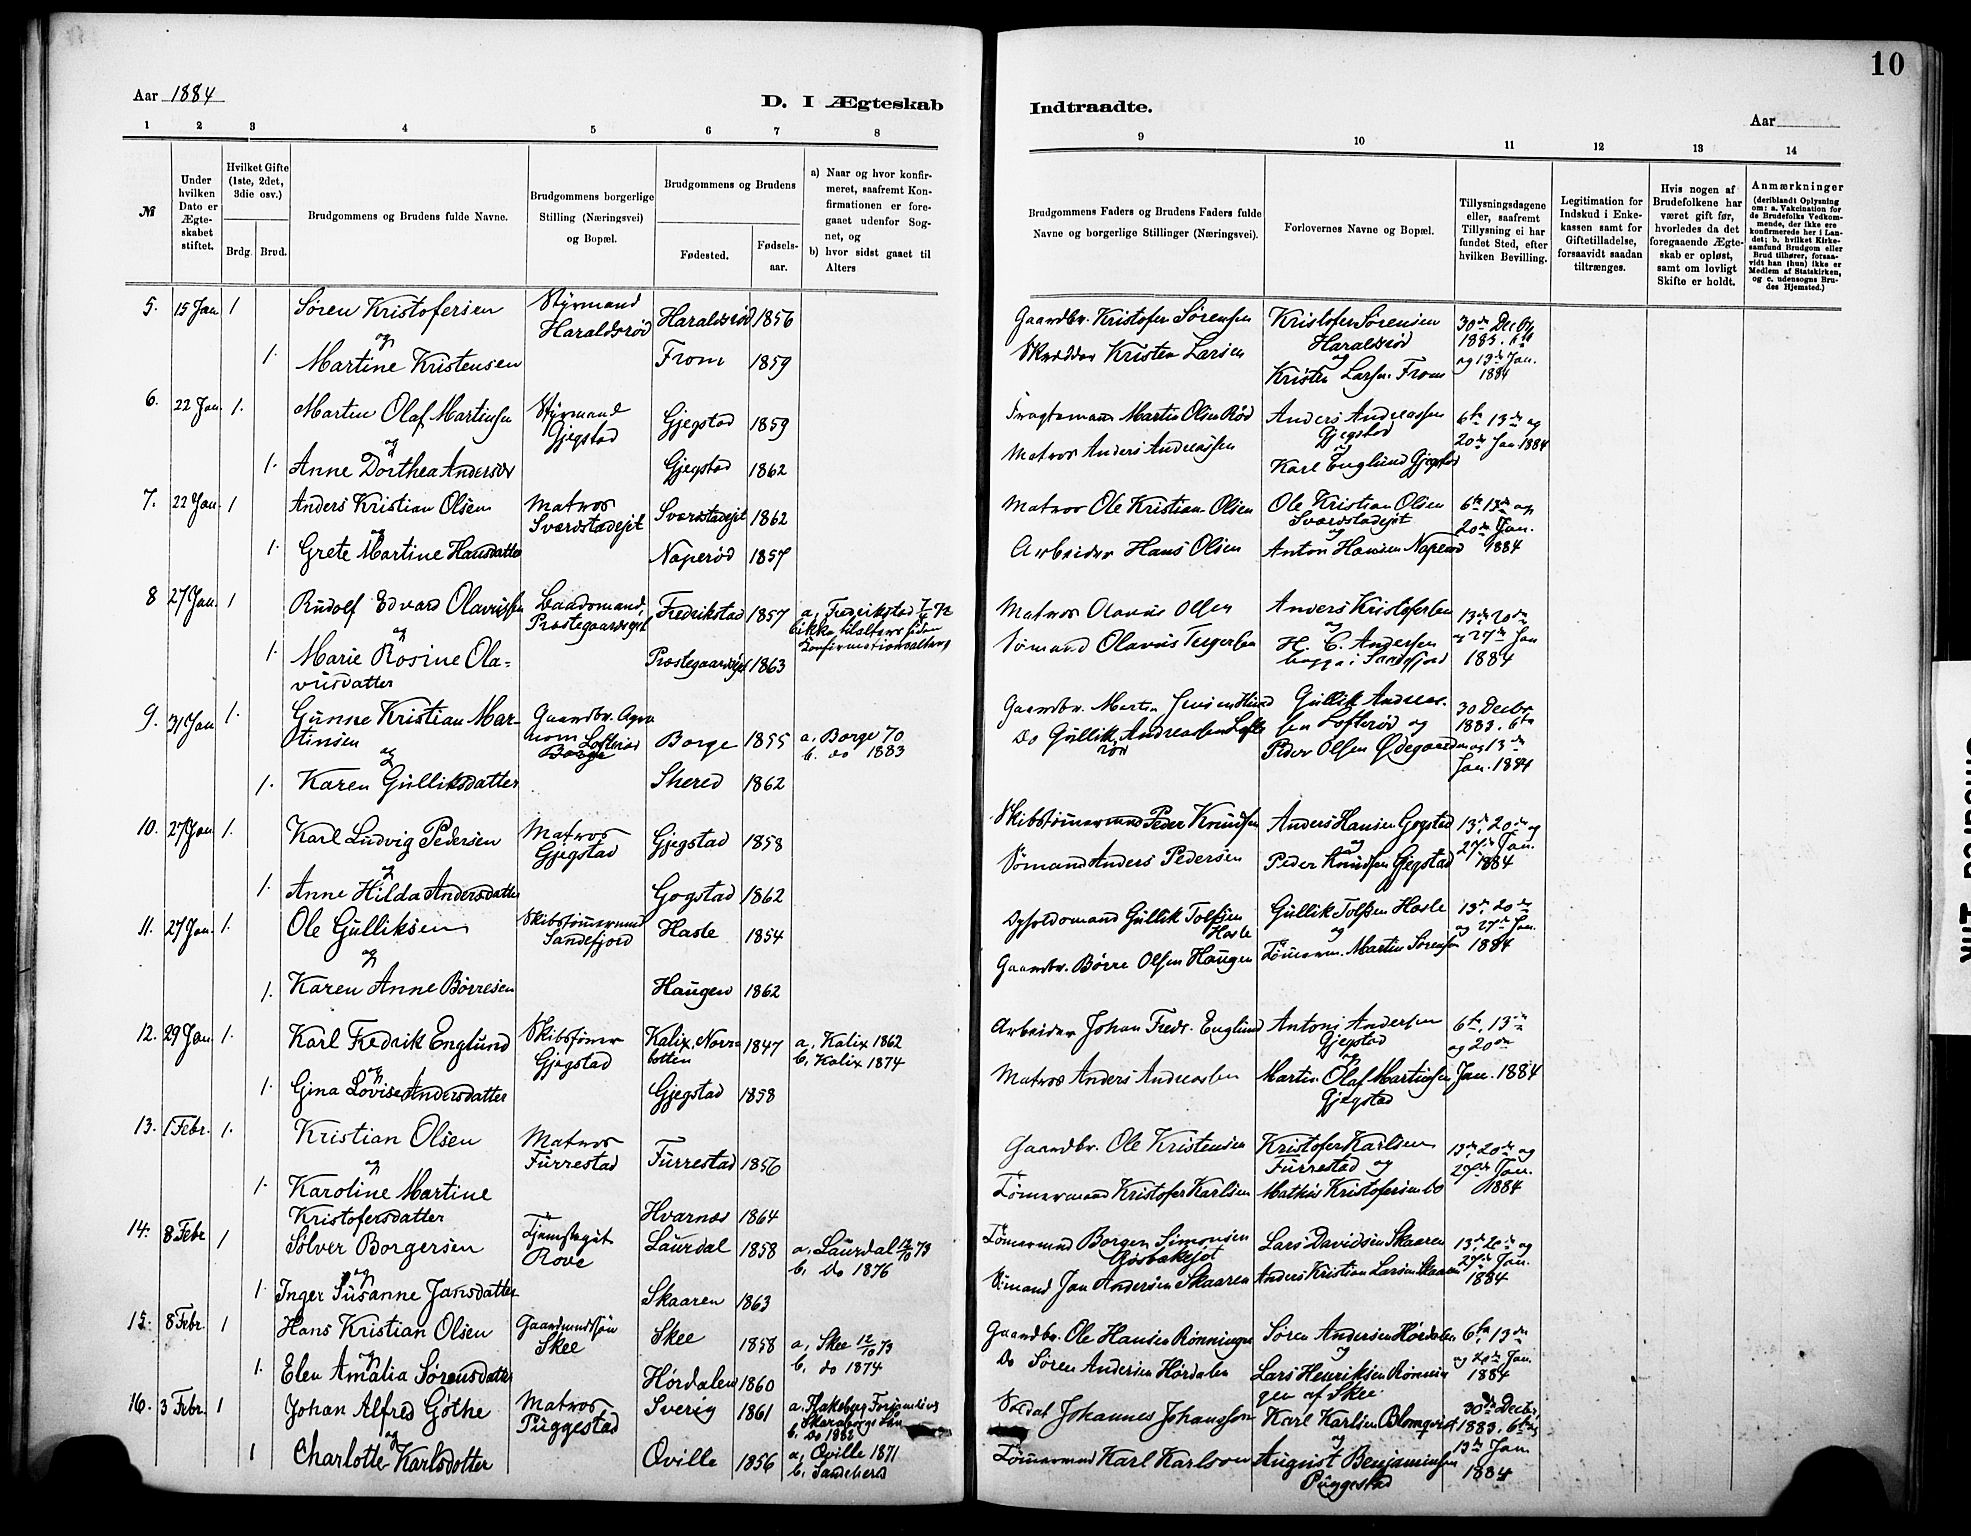 10
Aar 1884
D. I Ægteskab
Indtraadte.
Aar
1 2 3 4 5 6 7 8
9 10 11 12 13 14
№
Under hvilken Dato er Ægteskabet stiftet.
Hvilket Gifte (1ste, 2det, 3die osv.)
Brdg. Brud.
Brudgommens og Brudens fulde Navne.
Brudgommens borgerlige Stilling (Næringsvei) og Bopæl.
Brudgommens og Brudens
Fødested.
Fødsels-aar.
a) Naar og hvor konfirmeret, saafremt Konfirmationen er foregaaet udenfor Sognet, og
b) hvor sidst gaaet til Alters
Brudgommens Faders og Brudens Faders fulde Navne og borgerlige Stillinger (Næringsvei).
Forlovernes Navne og Bopæl.
Tillysningsdagene eller, saafremt Tillysning ei har fundet Sted, efter hvilken Bevilling.
Legitimation for Indskud i Enkekassen samt for Giftetilladelse, forsaavidt saadan tiltrænges.
Hvis nogen af Brudefolkene har været gift før, hvorledes da det foregaaende Ægteskab er opløst, samt om lovligt Skifte er holdt.
Anmærkninger (deriblandt Oplysning om: a. Vakcination for de Brudefolks Vedkommende, der ikke ere konfirmerede her i Landet; b. hvilket Kirkesamfund Brudgom eller Brud tilhører, forsaavidt han (hun) ikke er Medlem af Statskirken, og c. udensogns Brudes Hjemsted.)
5. 15 Jan 1 Søren Kristofersen Styrmand Haraldsrød Haraldsrød 1856
Gaardbr. Kristofer Sørensen Kristofer Sørensen Haraldsrød 30de Decbr 1883. 6te og 13de Jan. 1884
og
1. Martine Kristensen From 1859
Skrædder Kristen Larsen og Kristen Larsen From
6. 22 Jan. 1. Martin Olaf Martinsen Styrmand Gjegstad Gjegstad 1859
Fragtemann Martin Olsen Rød Anders Andreassen Gjegstad 6te 13de og 20de Jan 1884
og
1. Anne Dorthea Andersdr Gjegstad 1862
Matros Anders Andreassen og Karl Englund Gjegstad
7. 22 Jan 1 Anders Kristian Olsen Matros Sværdstadejet Sværdstadejet 1862
Matros Ole Kristian Olsen Ole Kristian Olsen Sværdstadejet 6te 13de og 20de Jan. 1884
og
1. Grete Martine Hansdatter Naperød 1857
Arbeider Hans Olsen og Anton Hansen Naperød
8 27 Jan. 1 Rudolf Edvard Olavussen Baadsmand, Præstegaardsejet Fredrikstad 1857 a, Fredrikstad 72
b ikke tilalters siden Konfirmationsalterg
Matros Olavus Olsen Anders Kristofersen 13de 20de og 27de Jan 1884
og
1. Marie Rosine Olavusdatter Præstegaardsejet 1863
Sømand Olavus Tregersen og H. C. Andersen begge i Sandefjord
9. 31 Jan 1. Gunne Kristian Martinsen Gaardbr. Agronom Lofterød Borge Borge 1855 a. Borge 70
b. do 1883
Gaardbr. Martin Gullik Andreassen Lofterød og 30 Decbr 1883. 6te og 13de Jan. 1884
og
1. Karen Gulliksdatter Skerød 1862
Do Gullik Andreassen Lofterød Peder Olsen Ødegaarden
10. 27 Jan 1. Karl Ludvig Pedersen Matros Gjegstad Gjegstad 1858
Skibstømermand Peder Knudsen Anders Hansen Gogstad 13de 20de og 27de Jan. 1884
og
1. Anne Hilda Andersdatter Gogstad 1862
Sømand Anders Pedersen og Peder Knudsen Gjegstad
11. 27 Jan. 1. Ole Gulliksen Skibstømermand Sandefjord Hasle 1854
Opholdsmand Gullik Tolfsen Hasle Gullik Tolfsen Hasle 13de 20de og 27de Jan. 1884
og
1. Karen Anne Børresen Haugen 1862
Gaardbr. Børre Olsen Haugen og Tømerm. Martin Sørensen
12. 29 Jan 1. Karl Fredrik Englund Skibstømer Gjegstad Kalix, Norrabotten 1847 a, Kalix 1862
b, Kalix 1874
Arbeider Johan Fredr. Englund Antoni Andersen Gjegstad 6te, 13de og 20de Jan. 1884
og
1. Gina Lovise Andersdatter Gjegstad 1858
Matros Anders Andreassen og Martin Olaf Martinsen Gjegstad
13. 1 Febr. 1. Kristian Olsen Matros Furrestad Furrestad 1856
Gaardbr. Ole Kristensen Kristofer Karlsen Furrestad og 13de 20de og 27de Jan. 1884
og
1. Karoline Martine Kristofersdatter Hvarnes 1864
Tømermand Kristofer Karlsen Mathis Kristofersen do
14. 8 Febr 1 Sølver Borgersen Tjenstegut Rove Laurdal 1858 a. Laurdal 12/10 73
b. Do 1876
Tømermand Borger Simonsen Lars Davidsen Skaaren 13de 20de og 27de Jan. 1884
og
1. Inger Susanne Jansdatter Skaaren 1863
Sømand Jan Andersen Skaaren Anders Kristian Larsen Skaaren
15. 8 Febr. 1 Hans Kristian Olsen Gaardmandssøn Skee Skee 1858 a, Skee 12/10 73
b. do 1874
Gaardbr. Ole Hansen Rønningen Søren Andersen Hørdalen 6te, 13de og 20de Jan. 1884
og
1. Elen Amalia Sørensdatter Hørdalen 1860
Do Søren Andersen Hørdalen Lars Henriksen Rønningen af Skee.
16. 3 Febr. 1 Johan Alfred Gøthe Matros Puggestad Sverig 1861 a. Flakeberg
Skaraborgs Län
b. Do 1882
Soldat Johannes Johansson Karl Karlsen Blomqvist 30de Decbr, 1883. 6te og 13de Jan 1884
og
1 Charlotte Karlsdotter Oville 1856 a, Oville 1871
b. Sandeherd
Tømermand Karl Karlsson og August Benjaminsen Puggestad